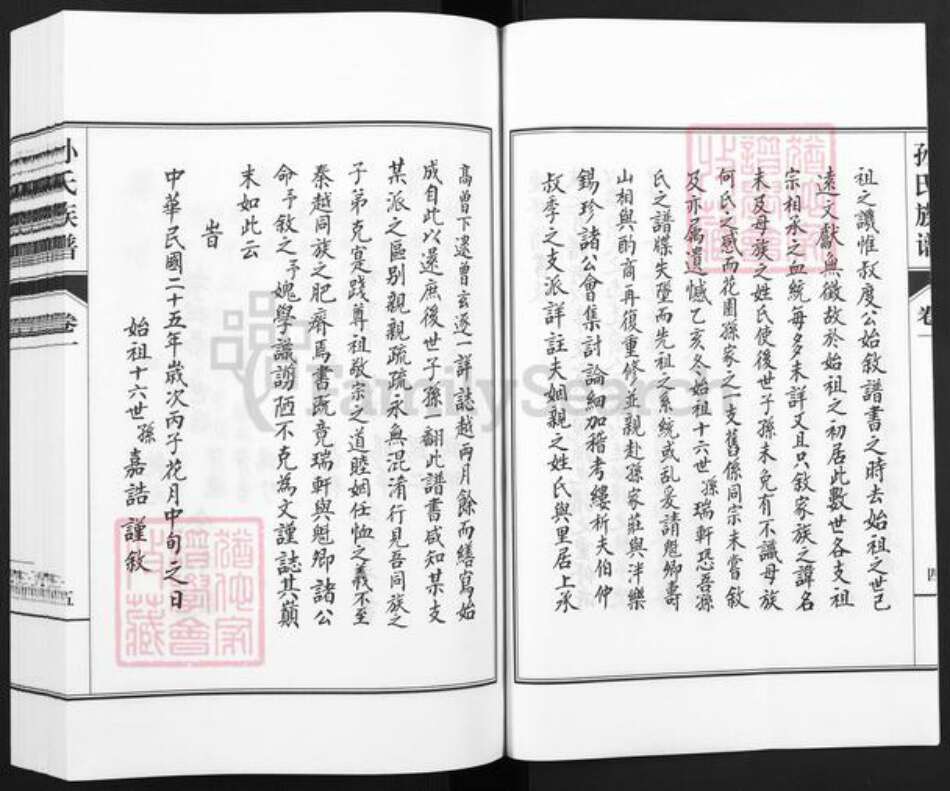 祖之譏惟叔度公始敘譜書之時去始祖之世已
遠文獻無徵故於始祖之初居此數世各支祖
宗相承之血統每多未詳又且只敘家族之諱名
未及母族之姓氏使後世子孫未免有不識母族
何氏之感而花園孫家之一支舊係同宗未嘗敘
及亦屬遺憾乙亥冬始祖十六世孫瑞軒恐吾孫
氏之譜牒失墜而先祖之系統或乱爰請魁卿壽
山相與酌商再復重修並親赴孫家莊與泮樂
錫珍諸公會集討論細加稽考縷析夫伯仲
叔季之支派詳註夫姻親之姓氏與里居上承
高曾下逮曾玄逐一詳誌越兩月餘而繕寫始
成自此以還庶後世子孫翻此譜書咸知某支
某派之區別親親疏疏永無混淆行見吾同族之
子弟克寔踐尊祖敬宗之道睦姻任恤之義不至
秦越同族之肥瘠焉書既竟瑞軒與魁卿諸公
命予敘之予媿學識謭陋不克為文謹誌其顛
末如此云
旹
中華民國二十五年歲次丙子花月中旬之日
始祖十六世孫嘉誥謹敘
孙氏族谱
卷一
四
五
FamilySearch